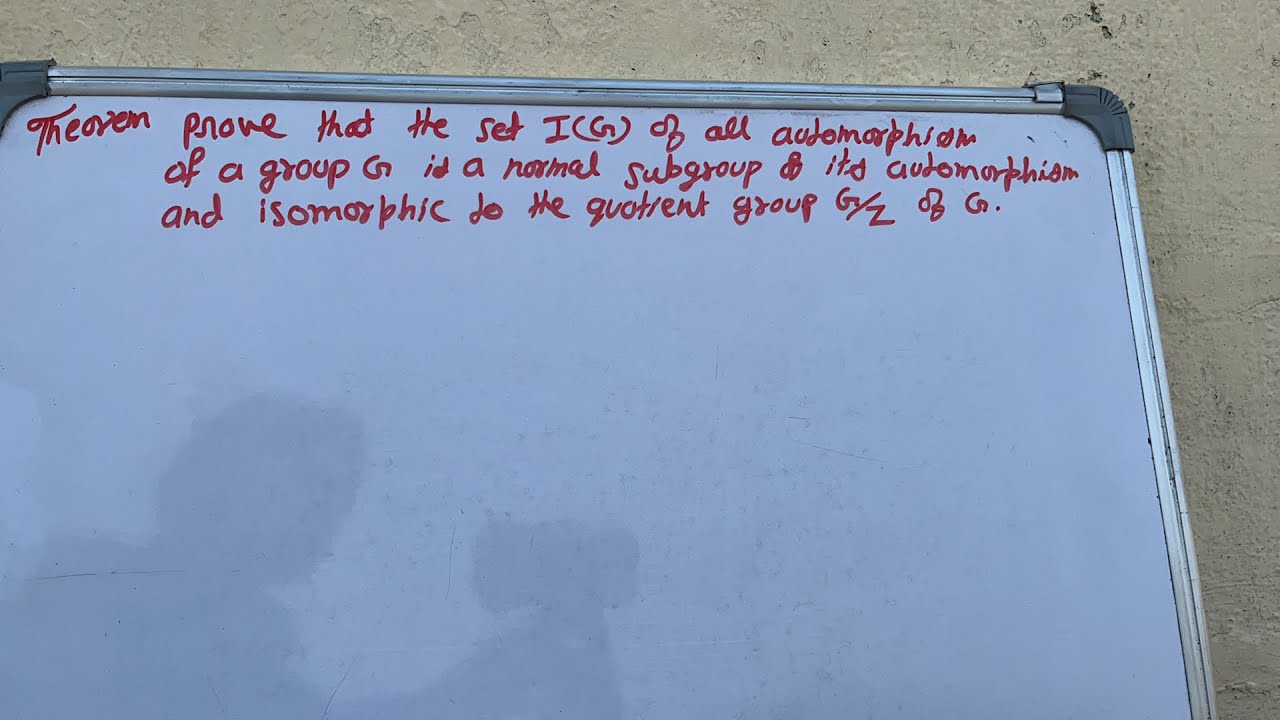 Theorem prove that the set I(G) of all automorphism
of a group G is a normal subgroup of its automorphism
and isomorphic to the quotient group G/Z of G.